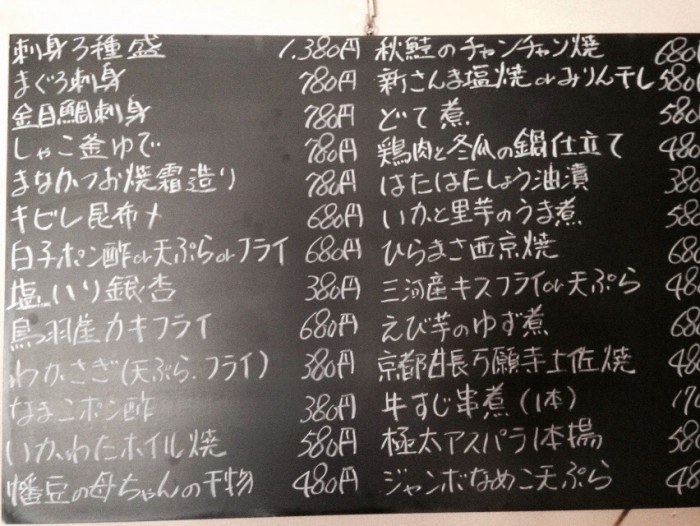 刺身3種盛 1,380円
まぐろ刺身 780円
金目鯛刺身 780円
しゃこ釜ゆで 780円
まながつお焼霜造り 780円
キビレ昆布〆 680円
白子ポン酢or天ぷらorフライ 680円
塩いり銀杏 380円
鳥羽産カキフライ 680円
わかさぎ(天ぷら.フライ) 380円
なまこポン酢 380円
いかわたホイル焼 580円
幡豆の母ちゃんの干物 480円
秋鮭のチャンチャン焼 680
新さんま塩焼orみりん干し 580
どて煮 580
鶏肉と冬瓜の鍋仕立て 480
はたはたしょう油漬 38
いかと里芋のうま煮 58
ひらまさ西京焼 680
三河産キスフライor天ぷら 48
えび芋のゆず煮 68
京都甘長万願寺土佐焼 48
牛すじ串煮(1本)
極太アスパラ1本揚 58
ジャンボなめこ天ぷら 48